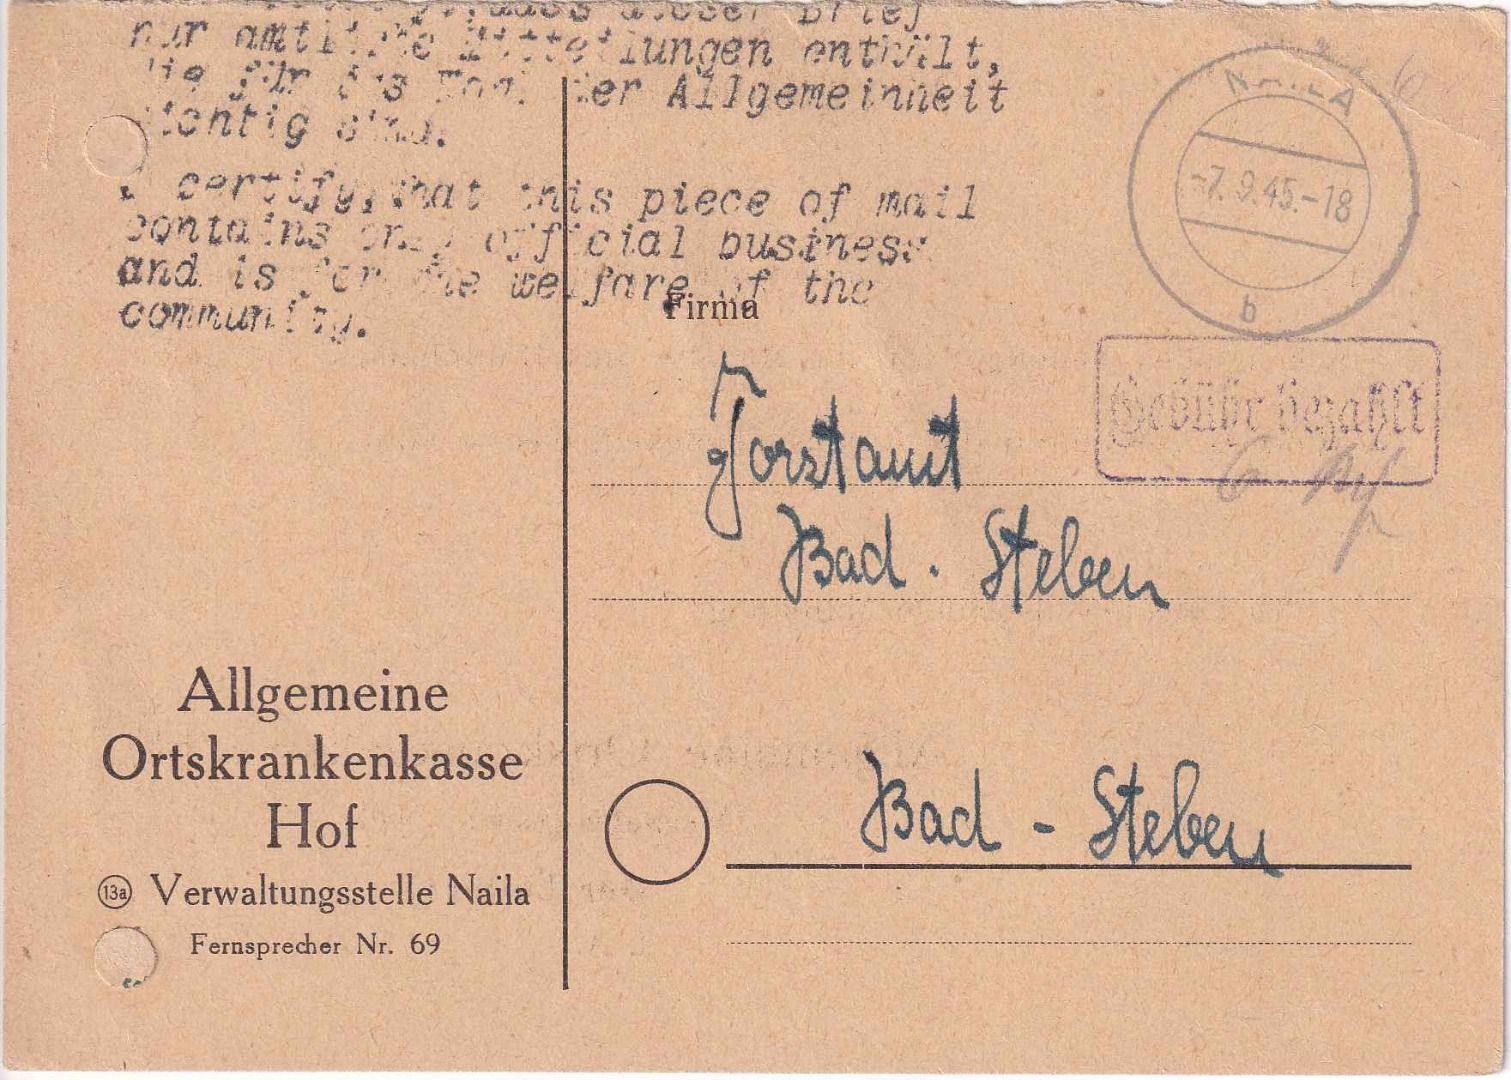 dieser Brief
nur amtliche Mitteilungen enthält,
die für das Wohl der Allgemeinheit
wichtig sind.
I certify, that this piece of mail
contains only official business
and is for the welfare of the
community.
NAILA
-7.9.45.-18
b
Gebühr bezahlt
6 Rpf
Firma
Forstamt
Bad. Steben
Bad - Steben
Allgemeine
Ortskrankenkasse
Hof
13a Verwaltungsstelle Naila
Fernsprecher Nr. 69